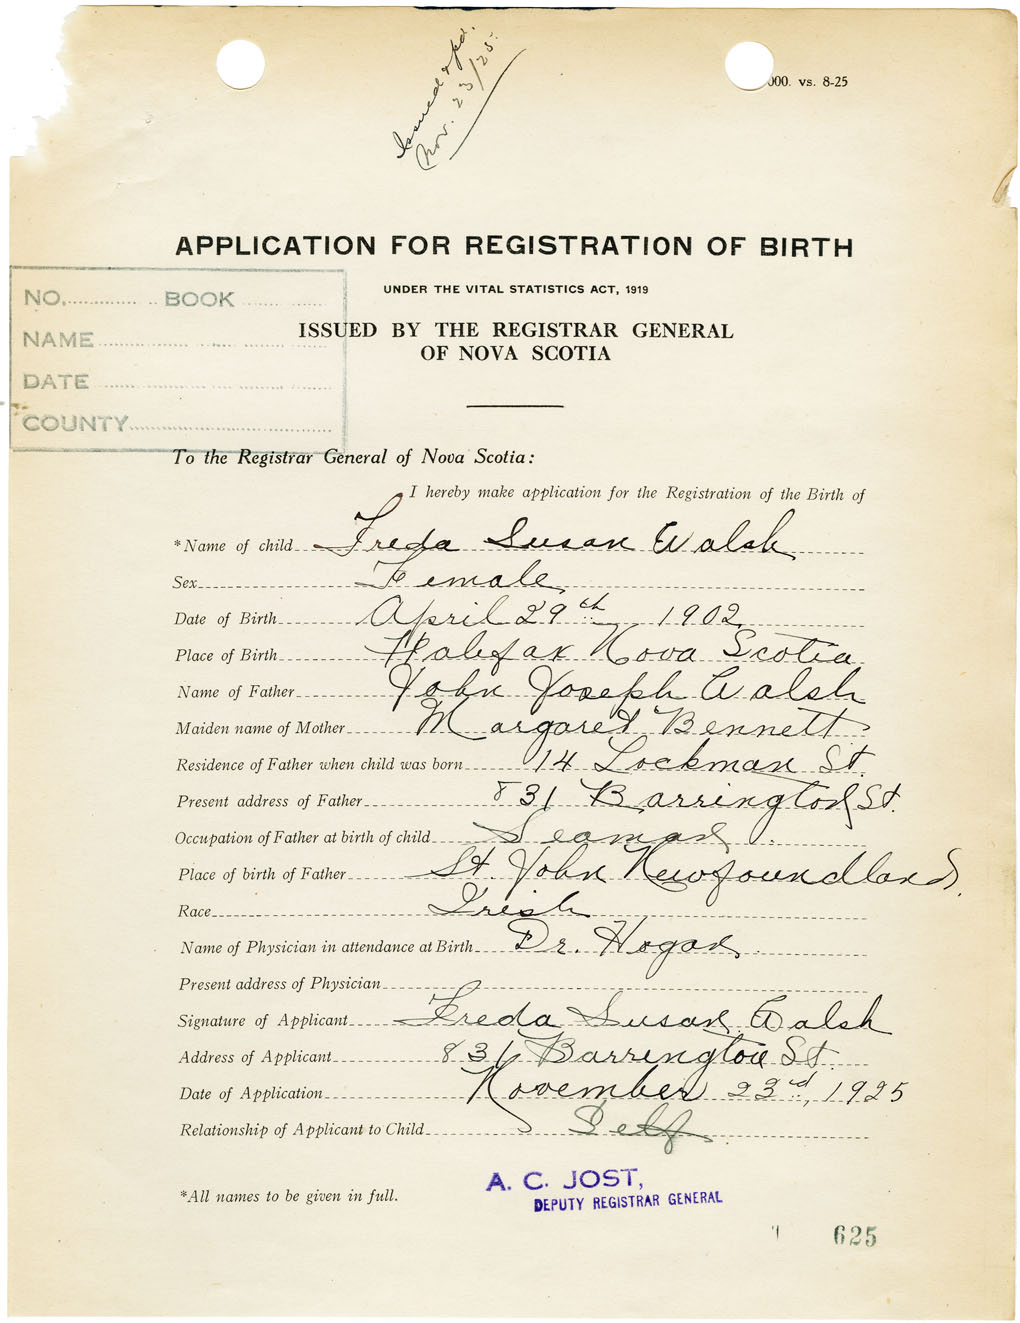 Issued & pd.
Nov. 23/25.
000. vs. 8-25
APPLICATION FOR REGISTRATION OF BIRTH
UNDER THE VITAL STATISTICS ACT, 1919
ISSUED BY THE REGISTRAR GENERAL
OF NOVA SCOTIA
NO. BOOK
NAME
DATE
COUNTY
To the Registrar General of Nova Scotia:
I hereby make application for the Registration of the Birth of
*Name of child Freda Susan Walsh
Sex Female
Date of Birth April 29th 1902
Place of Birth Halifax Nova Scotia
Name of Father John Joseph Walsh
Maiden name of Mother Margaret Bennett
Residence of Father when child was born 14 Lockman St.
Present address of Father 831 Barrington St.
Occupation of Father at birth of child Seaman.
Place of birth of Father St. John Newfoundland.
Race Irish
Name of Physician in attendance at Birth Dr. Hogan.
Present address of Physician
Signature of Applicant Freda Susan Walsh
Address of Applicant 831 Barrington St.
Date of Application November 23rd, 1925
Relationship of Applicant to Child Self.
*All names to be given in full.
A. C. JOST,
DEPUTY REGISTRAR GENERAL
625